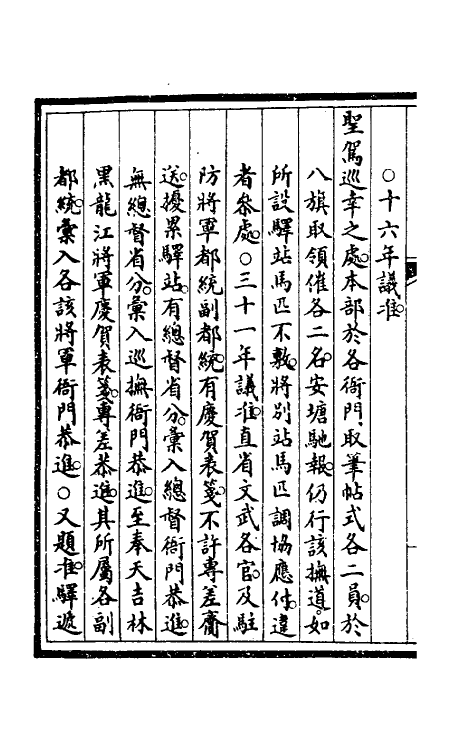 ○十六年議准
聖駕巡幸之處本部於各衙門取筆帖式各二員於
八旗取領催各二名安塘馳報仍行該撫道如
所設驛站馬匹不敷將別站馬匹調協應付違
者叅處○三十一年議准直省文武各官及駐
防將軍都統副都統有慶賀表箋不許專差齎
送擾累驛站有總督省分彙入總督衙門恭進
無總督省分彙入巡撫衙門恭進至奉天吉林
黑龍江將軍慶賀表箋專差恭進其所屬各副
都統彙入各該將軍衙門恭進○又題准驛遞